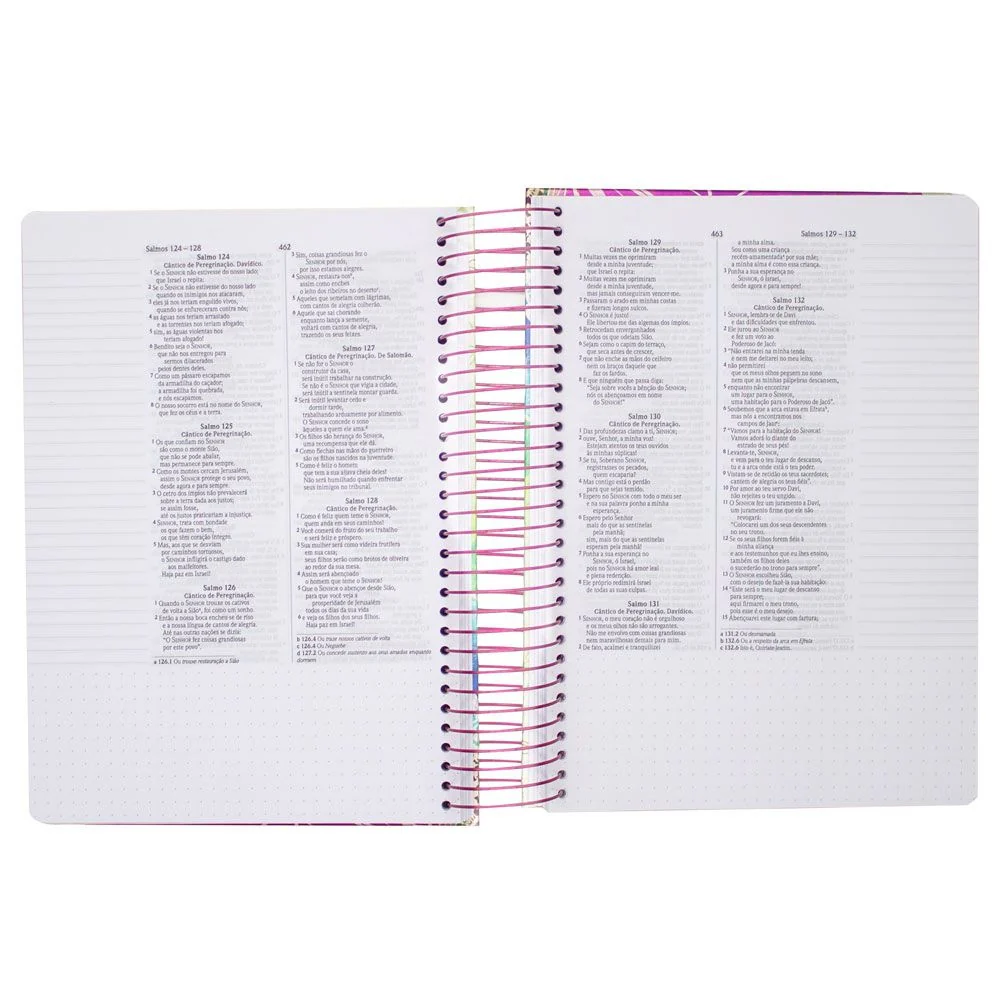 Salmos 124 – 128
462
Salmo 124
Cântico de Peregrinação. Davídico.
1 Se o SENHOR não estivesse do nosso lado;
que Israel o repita:
2 Se o SENHOR não estivesse do nosso lado
quando os inimigos nos atacaram,
3 eles já nos teriam engolido vivos,
quando se enfureceram contra nós;
4 as águas nos teriam arrastado
e as torrentes nos teriam afogado;
5 sim, as águas violentas nos
teriam afogado!
6 Bendito seja o SENHOR,
que não nos entregou para
sermos dilacerados
pelos dentes deles.
7 Como um pássaro escapamos
da armadilha do caçador;
a armadilha foi quebrada,
e nós escapamos.
8 O nosso socorro está no nome do SENHOR,
que fez os céus e a terra.
Salmo 125
Cântico de Peregrinação.
1 Os que confiam no SENHOR
são como o monte Sião,
que não se pode abalar,
mas permanece para sempre.
2 Como os montes cercam Jerusalém,
assim o SENHOR protege o seu povo,
desde agora e para sempre.
3 O cetro dos ímpios não prevalecerá
sobre a terra dada aos justos;
se assim fosse,
até os justos praticariam a injustiça.
4 SENHOR, trata com bondade
os que fazem o bem,
os que têm coração íntegro.
5 Mas, aos que se desviam
por caminhos tortuosos,
o SENHOR infligirá o castigo dado
aos malfeitores.
Haja paz em Israel!
Salmo 126
Cântico de Peregrinação.
1 Quando o SENHOR trouxe os cativos
de volta a Siãoª, foi como um sonho.
2 Então a nossa boca encheu-se de riso
e a nossa língua de cantos de alegria.
Até nas outras nações se dizia:
“O SENHOR fez coisas grandiosas
por este povo”.
a 126.1 Ou trouxe restauração a Sião
3 Sim, coisas grandiosas fez o
SENHOR por nós,
por isso estamos alegres.
4 SENHOR, restaura-nosᵇ,
assim como enches
o leito dos ribeiros no desertoᶜ.
5 Aqueles que semeiam com lágrimas,
com cantos de alegria colherão.
6 Aquele que sai chorando
enquanto lança a semente,
voltará com cantos de alegria,
trazendo os seus feixes.
Salmo 127
Cântico de Peregrinação. De Salomão.
1 Se não for o SENHOR o
construtor da casa,
será inútil trabalhar na construção.
Se não é o SENHOR que vigia a cidade,
será inútil a sentinela montar guarda.
2 Será inútil levantar cedo e
dormir tarde,
trabalhando arduamente por alimento.
O SENHOR concede o sono
àqueles a quem ele ama.ᵈ
3 Os filhos são herança do SENHOR,
uma recompensa que ele dá.
4 Como flechas nas mãos do guerreiro
são os filhos nascidos na juventude.
5 Como é feliz o homem
que tem a sua aljava cheia deles!
Não será humilhado quando enfrentar
seus inimigos no tribunal.
Salmo 128
Cântico de Peregrinação.
1 Como é feliz quem teme o SENHOR,
quem anda em seus caminhos!
2 Você comerá do fruto do seu trabalho
e será feliz e próspero.
3 Sua mulher será como videira frutífera
em sua casa;
seus filhos serão como brotos de oliveira
ao redor da sua mesa.
4 Assim será abençoado
o homem que teme o SENHOR!
5 Que o SENHOR o abençoe desde Sião,
para que você veja a
prosperidade de Jerusalém
todos os dias da sua vida
6 e veja os filhos dos seus filhos.
Haja paz em Israel!
b 126.4 Ou traze nossos cativos de volta
c 126.4 Ou Neguebe
d 127.2 Ou concede sustento aos seus amados enquanto
dormem
463
Salmos 129 – 132
Salmo 129
Cântico de Peregrinação.
1 Muitas vezes me oprimiram
desde a minha juventude;
que Israel o repita:
2 Muitas vezes me oprimiram
desde a minha juventude,
mas jamais conseguiram vencer-me.
3 Passaram o arado em minhas costas
e fizeram longos sulcos.
4 O SENHOR é justo!
Ele libertou-me das algemas dos ímpios.
5 Retrocedam envergonhados
todos os que odeiam Sião.
6 Sejam como o capim do terraço,
que seca antes de crescer,
7 que não enche as mãos do ceifeiro
nem os braços daquele que
faz os fardos.
8 E que ninguém que passa diga:
“Seja sobre vocês a bênção do SENHOR;
nós os abençoamos em nome
do SENHOR!”
Salmo 130
Cântico de Peregrinação.
1 Das profundezas clamo a ti, SENHOR;
2 ouve, Senhor, a minha voz!
Estejam atentos os teus ouvidos
às minhas súplicas!
3 Se tu, Soberano SENHOR,
registrasses os pecados,
quem escaparia?
4 Mas contigo está o perdão
para que sejas temido.
5 Espero no SENHOR com todo o meu ser
e na sua palavra ponho a minha
esperança.
6 Espero pelo Senhor
mais do que as sentinelas
pela manhã;
sim, mais do que as sentinelas
esperam pela manhã!
7 Ponha a sua esperança no
SENHOR, ó Israel,
pois no SENHOR há amor leal
e plena redenção.
8 Ele próprio redimirá Israel
de todas as suas culpas.
Salmo 131
Cântico de Peregrinação. Davídico.
1 SENHOR, o meu coração não é orgulhoso
e os meus olhos não são arrogantes.
Não me envolvo com coisas grandiosas
nem maravilhosas demais para mim.
2 De fato, acalmei e tranquilizei
a minha alma.
Sou como uma criança
recém-amamentadaª por sua mãe;
a minha alma é como essa criança.
3 Ponha a sua esperança no
SENHOR, ó Israel,
desde agora e para sempre!
Salmo 132
Cântico de Peregrinação.
1 SENHOR, lembra-te de Davi
e das dificuldades que enfrentou.
2 Ele jurou ao SENHOR
e fez um voto ao
Poderoso de Jacó:
3 “Não entrarei na minha tenda
e nem me deitarei no meu leito;
4 não permitirei
que os meus olhos peguem no sono
nem que as minhas pálpebras descansem,
5 enquanto não encontrar
um lugar para o SENHOR,
uma habitação para o Poderoso de Jacó”.
6 Soubemos que a arca estava em Efrataᵇ,
mas nós a encontramos nos
campos de Jaarᶜ:
7 “Vamos para a habitação do SENHOR!
Vamos adorá-lo diante do
estrado de seus pés!
8 Levanta-te, SENHOR,
e vem para o teu lugar de descanso,
tu e a arca onde está o teu poder.
9 Vistam-se de retidão os teus sacerdotes;
cantem de alegria os teus fiéis”.
10 Por amor ao teu servo Davi,
não rejeites o teu ungido.
11 O SENHOR fez um juramento a Davi,
um juramento firme que ele não
revogará:
“Colocarei um dos seus descendentes
no seu trono.
12 Se os seus filhos forem fiéis à
minha aliança
e aos testemunhos que eu lhes ensino,
também os filhos deles
o sucederão no trono para sempre”.
13 O SENHOR escolheu Sião,
com o desejo de fazê-la sua habitação:
14 “Este será o meu lugar de descanso
para sempre;
aqui firmarei o meu trono,
pois esse é o meu desejo.
15 Abençoarei este lugar com fartura;
a 131.2 Ou desmamada
b 132.6 Ou a respeito da arca em Efrata
c 132.6 Isto é, Quiriate-Jearim.